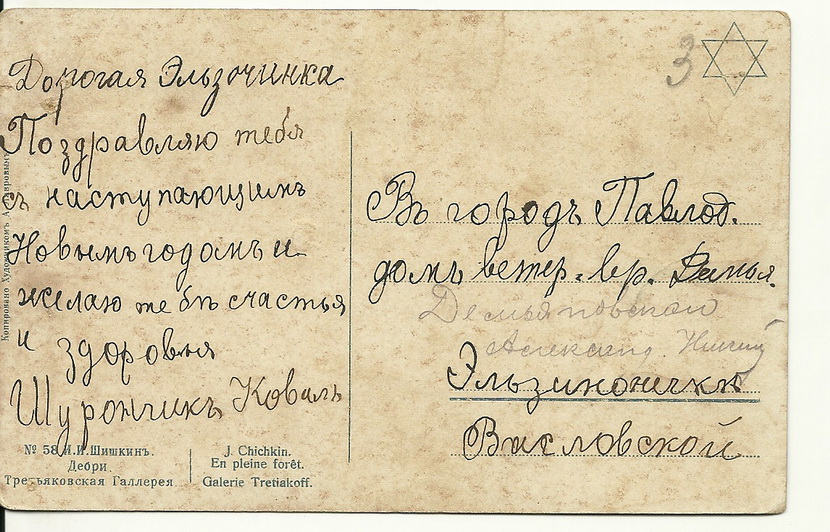 Дорогая Эльзочинка
Поздравляю тебя
съ наступающимъ
Новымъ годомъ и
желаю тебѣ счастья
и здоровья
Шурончикъ Коваль
3
Въ городъ Павлод.
домъ ветер. вр. Демья.
Демьяновской
Александ.
Эльзиночкѣ
Висловской
Копировано Художникомъ
№ 58 И.И. Шишкинъ.
Дебри.
Третьяковская Галлерея
J. Chichkin.
En pleine forêt.
Galerie Tretiakoff.